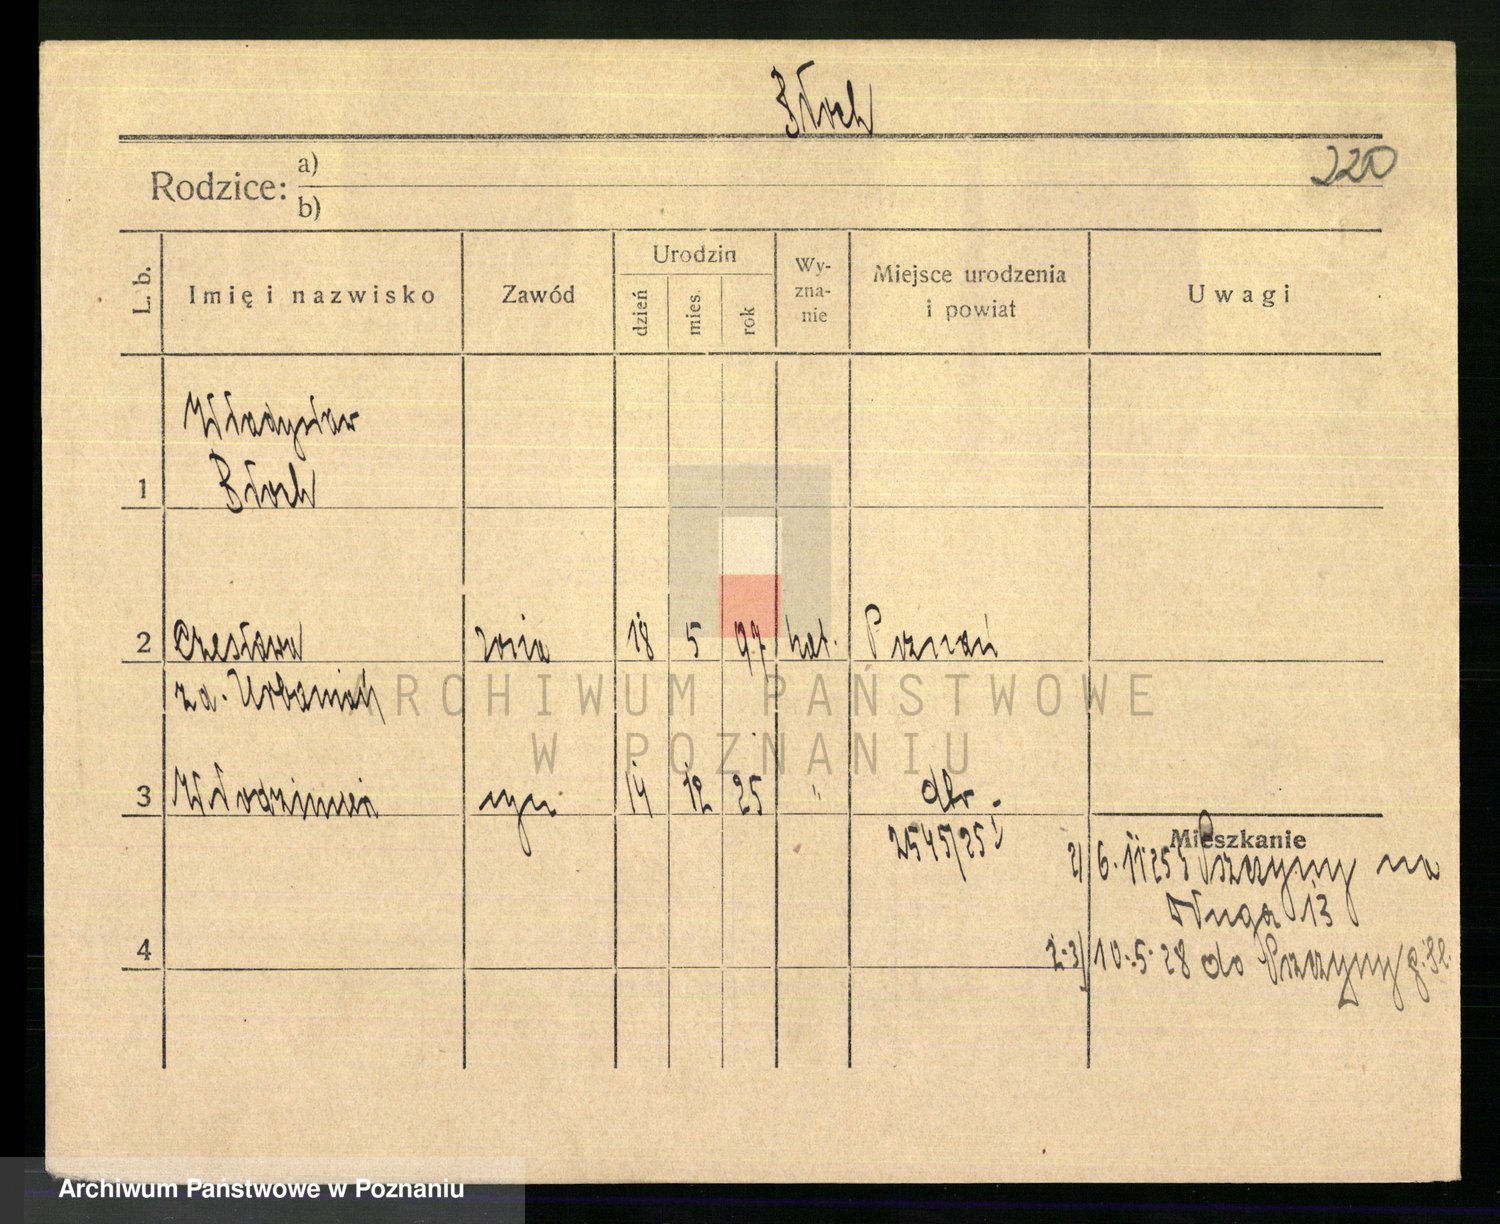 Błoch
220
Rodzice: a)
b)
L. b. Imię i nazwisko Zawód Urodzin dzień mies. rok Wy-zna-nie Miejsce urodzenia i powiat Uwagi
Władysław
1 Błoch
2 Czesława żona 18 5 97 kat. Poznań
za. Urbaniak
ARCHIWUM PAŃSTWOWE
W POZNANIU
3 Włodzimierz syn 14 12 25 " dto
2545/25
Mieszkanie
2/ 6.11 25 z Pszczyny na
Długa 13
4
2-3/ 10.5.28 do Pszczyny g. Śl.
Archiwum Państwowe w Poznaniu